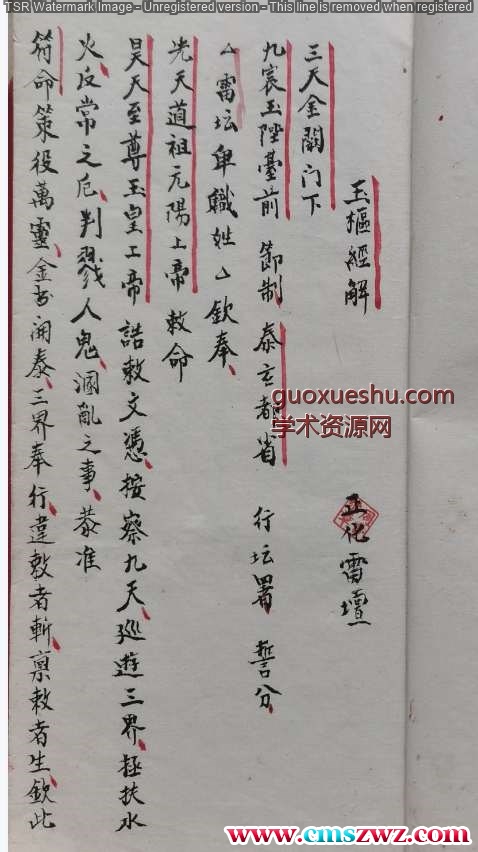 TSR Watermark Image - Unregistered version - This line is removed when registered
玉樞經解 正化雷壇
三天金闕门下
九宸玉陛臺前 御制 泰玄都省 行坛署 誓分
△雷坛卑職姓△欽奉
先天道祖元陽上帝敕命
昊天至尊玉皇上帝 誥敕文憑按察九天巡遊三界拯扶水
火反常之厄判戮人鬼溷亂之事恭准
符命策役萬靈金书闭泰三界奉行違敕者斬禀敕者生欽此
guoxueshu.com
学术资源网
www.cmszwz.com